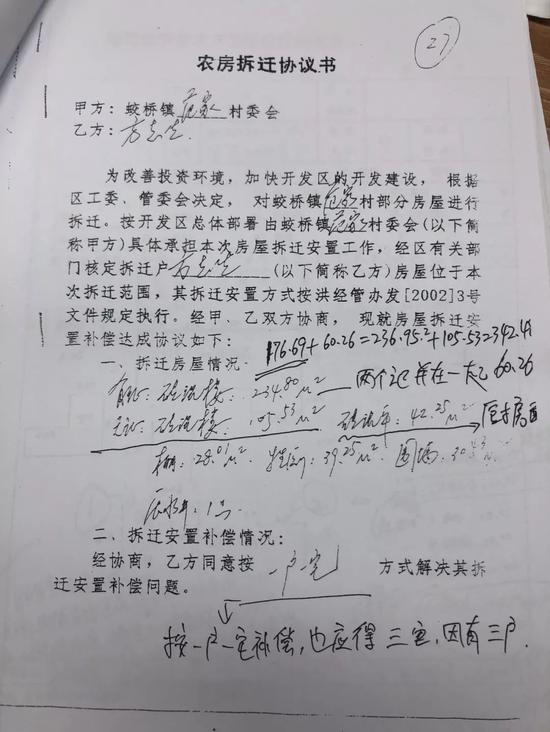 27
农房拆迁协议书
甲方：蛟桥镇范家村委会
乙方：
为改善投资环境，加快开发区的开发建设，根据
区工委、管委会决定，对蛟桥镇范家村部分房屋进行
拆迁。按开发区总体部署由蛟桥镇范家村委会(以下简
称甲方)具体承担本次房屋拆迁安置工作，经区有关部
门核定拆迁户 (以下简称乙方)房屋位于本
次拆迁范围，其拆迁安置方式按洪经管办发[2002]3号
文件规定执行。经甲、乙双方协商，现就房屋拆迁安
置补偿达成协议如下：
176.69+60.26=236.95+105.53=342.48
一、拆迁房屋情况
有证：砖混楼：234.80m² 两个证并在一起 60.26
无证：砖混楼：105.53m² 砖混平：42.25m²
棚：28.01m² 39.25m² 围墙：
二、拆迁安置补偿情况：
经协商，乙方同意按 一户一宅 方式解决其拆
迁安置补偿问题。
按一户一宅补偿，也应得三宅，因有三户.